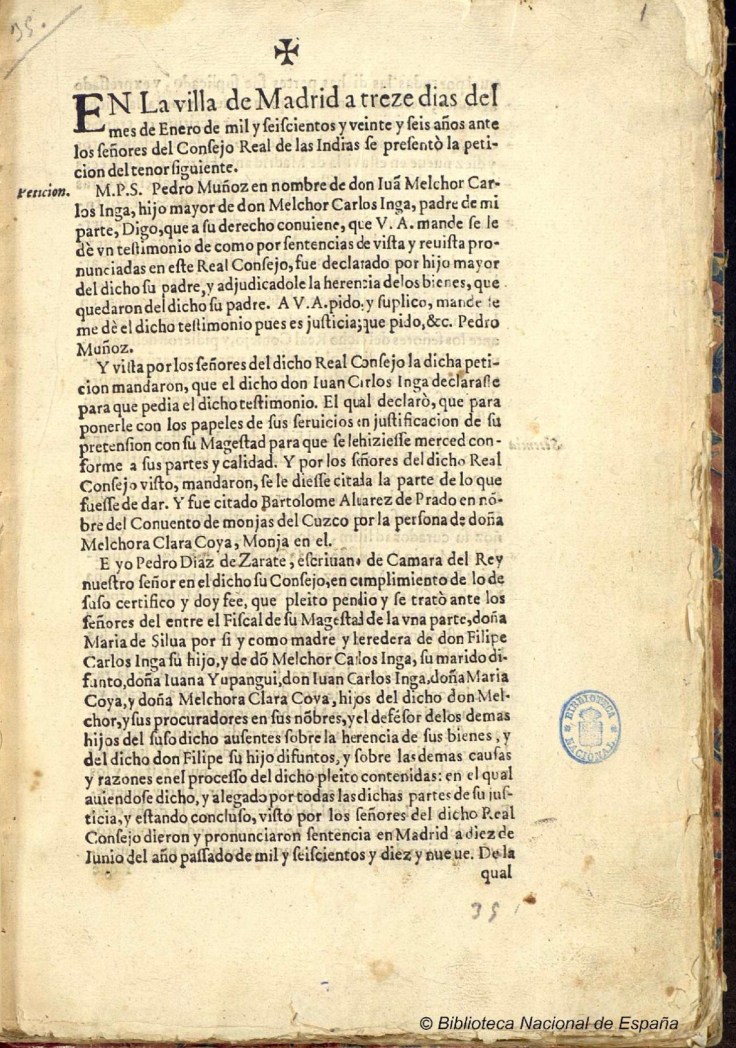 35.
1
✠
EN La villa de Madrid a treze dias del
mes de Enero de mil y ſeiſcientos y veinte y ſeis años ante
los ſeñores del Conſejo Real de las Indias ſe preſentò la peti-
cion del tenor ſiguiente.
Peticion.
M.P.S. Pedro Muñoz en nombre de don Iuã Melchor Car-
los Inga, hijo mayor de don Melchor Carlos Inga, padre de mi
parte, Digo, que a ſu derecho conuiene, que V. A. mande ſe le
dè vn teſtimonio de como por ſentencias de viſta y reuiſta pro-
nunciadas en eſte Real Conſejo, fue declarado por hijo mayor
del dicho ſu padre, y adjudicadole la herencia delos bienes, que
quedaron del dicho ſu padre. A V.A. pido, y ſuplico, mande ſe
me dè el dicho teſtimonio pues es juſticia; que pido, &c. Pedro
Muñoz.
Y viſta por los ſeñores del dicho Real Conſejo la dicha peti-
cion mandaron, que el dicho don Iuan Carlos Inga declaraſſe
para que pedia el dicho teſtimonio. El qual declarò, que para
ponerle con los papeles de ſus ſeruicios en juſtificacion de ſu
pretenſion con ſu Mageſtad para que ſe lehizieſſe merced con-
forme a ſus partes y calidad. Y por los ſeñores del dicho Real
Conſejo viſto, mandaron, ſe le dieſſe citada la parte de lo que
fueſſe de dar. Y fue citado Bartolome Aluarez de Prado en nõ-
bre del Conuento de monjas del Cuzco por la perſona de doña
Melchora Clara Coya, Monja en el.
E yo Pedro Diaz de Zarate, eſcriuano de Camara del Rey
nueſtro ſeñor en el dicho ſu Conſejo, en cumplimiento de lo de
ſuſo certifico y doy fee, que pleito pendio y ſe tratò ante los
ſeñores del entre el Fiſcal de ſu Mageſtad de la vna parte, doña
Maria de Silua por ſi y como madre y heredera de don Filipe
Carlos Inga ſu hijo, y de dõ Melchor Carlos Inga, ſu marido di-
funto, doña Iuana Yupangui, don Iuan Carlos Inga, doña Maria
Coya, y doña Melchora Clara Coya, hijos del dicho don Mel-
chor, y ſus procuradores en ſus nõbres, y el defẽſor delos demas
hijos del ſuſodicho auſentes ſobre la herencia de ſus bienes, y
del dicho don Filipe ſu hijo difuntos, y ſobre las demas cauſas
y razones enel proceſſo del dicho pleito contenidas: en el qual
auiendoſe dicho, y alegado por todas las dichas partes de ſu juſ-
ticia, y eſtando concluſo, viſto por los ſeñores del dicho Real
Conſejo dieron y pronunciaron ſentencia en Madrid a diez de
Iunio del año paſſado de mil y ſeiſcientos y diez y nueue. De la
qual
35
BIBLIOTECA NACIONAL
© Biblioteca Nacional de España